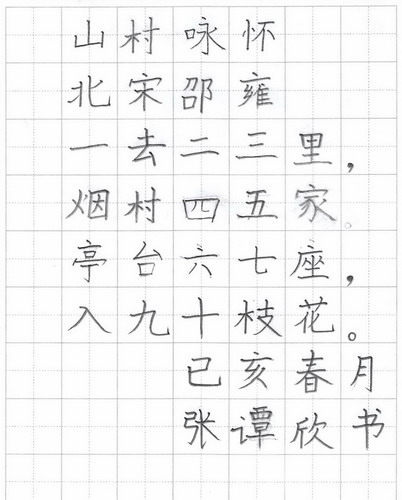 山村咏怀
北宋邵雍
一去二三里，
烟村四五家。
亭台六七座，
入九十枝花。
已亥春月
张谭欣书